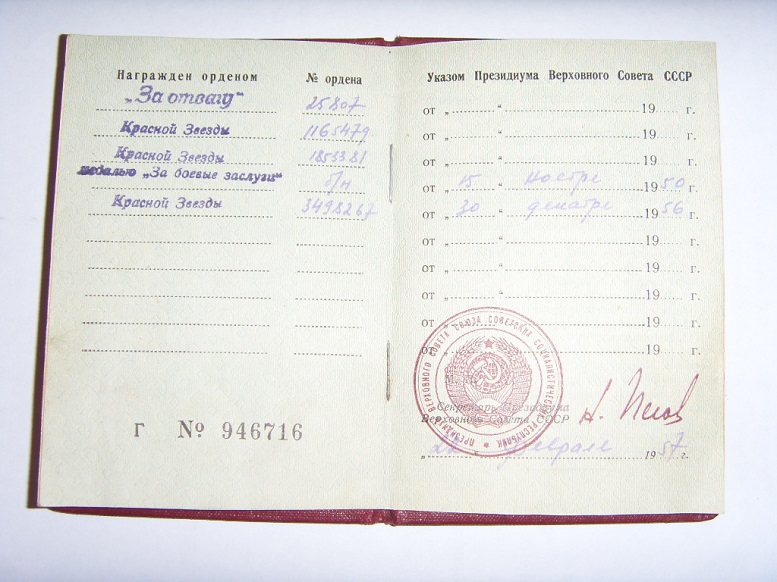 Награжден орденом № ордена
„За отвагу" 25807
Красной Звезды 1165479
Красной Звезды 1853381
медалью „За боевые заслуги" б/н
Красной Звезды 3498267
Г № 946716
Указом Президиума Верховного Совета СССР
от „ " 19 г.
от „ " 19 г.
от „ " 19 г.
от „ 15 " ноября 1950 г.
от „ 30 " декабря 1956 г.
от „ " 19 г.
от „ " 19 г.
от „ " 19 г.
от „ " 19 г.
от „ " 19 г.
ПРЕЗИДИУМ ВЕРХОВНОГО СОВЕТА СОЮЗА СОВЕТСКИХ СОЦИАЛИСТИЧЕСКИХ РЕСПУБЛИК
Секретарь Президиума
Верховного Совета СССР
Н. Пегов
февраля 1957 г.